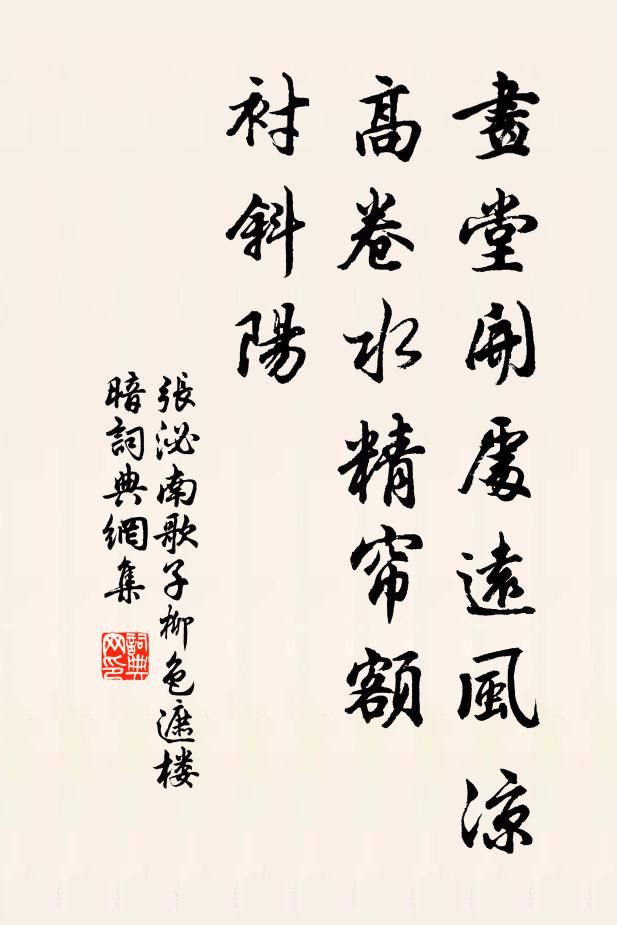 畫堂開處遠風涼
高卷水精帘額
衬斜陽
張泌南歌子柳色遮楼
暗詞典網集
詞典
网印